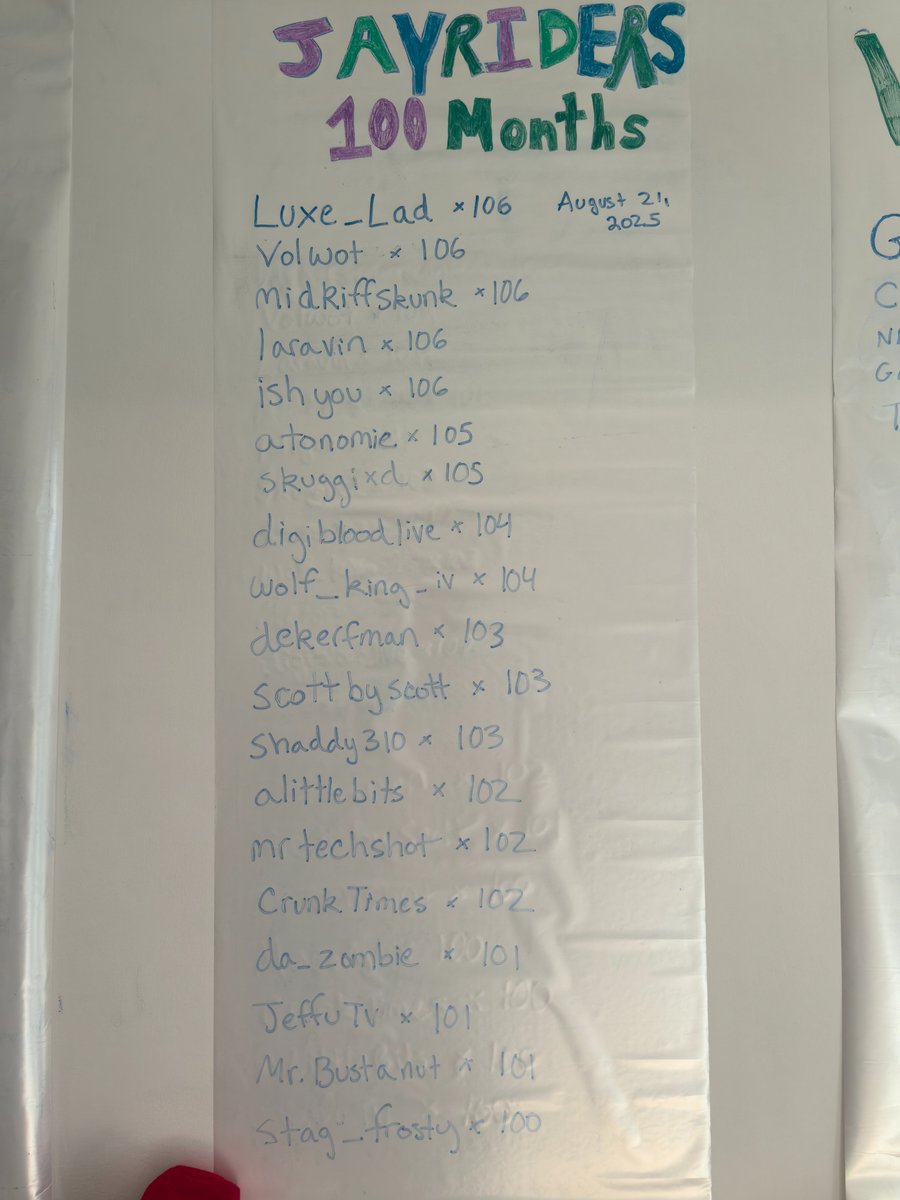 JAYRIDERS
100 Months
Luxe_Lad ×106 August 21,
2025
Volwot × 106
midkiffskunk ×106
laravin × 106
ishyou × 106
atonomie × 105
skuggixd × 105
digibloodlive × 104
wolf_king_iv × 104
dekerfman × 103
scottbyscott × 103
Shaddy310 × 103
alittlebits × 102
mrtechshot ×102
CrunkTimes × 102
da_zombie × 101
JeffuTV × 101
Mr.Bustanut × 101
Stag_frosty × 100
G
C
N
G
T